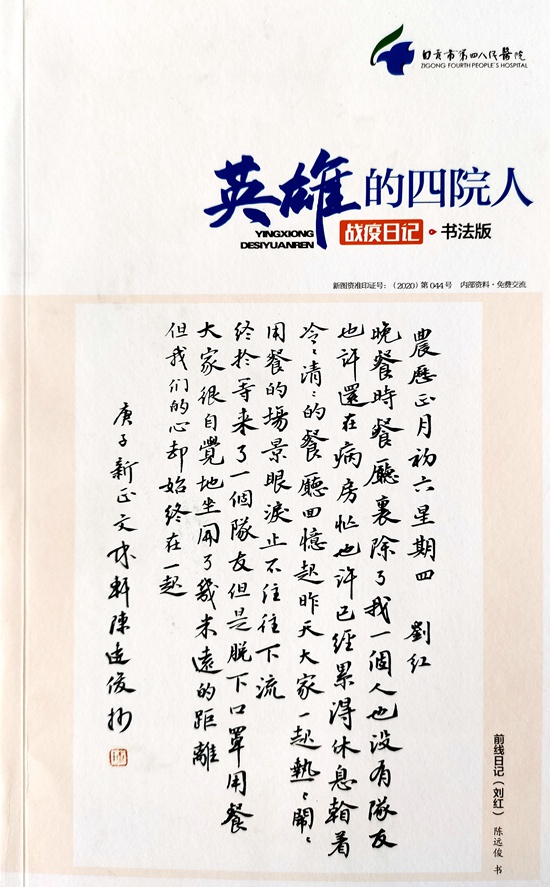 自贡市第四人民醫院
ZIGONG FOURTH PEOPLE'S HOSPITAL
英雄的四院人
YINGXIONG
DESIYUANREN
战疫日记·书法版
新图资准印证号：（2020）第044号 内部资料·免费交流
農歷正月初六星期四 劉红
晚餐時餐廳裏除了我一個人也没有隊友
也许還在病房忙也许已經累得休息翰着
冷〻清〻的餐廳回憶起昨天大家一起熱〻鬧〻
用餐的場景眼淚止不住往下流
终於等来了一個隊友但是脱下口罩用餐
大家很自覺地坐開了幾米遠的距離
但我们的心却始终在一起
庚子新正文 軒陳遠俊抄
前线日记（刘红） 陈远俊 书